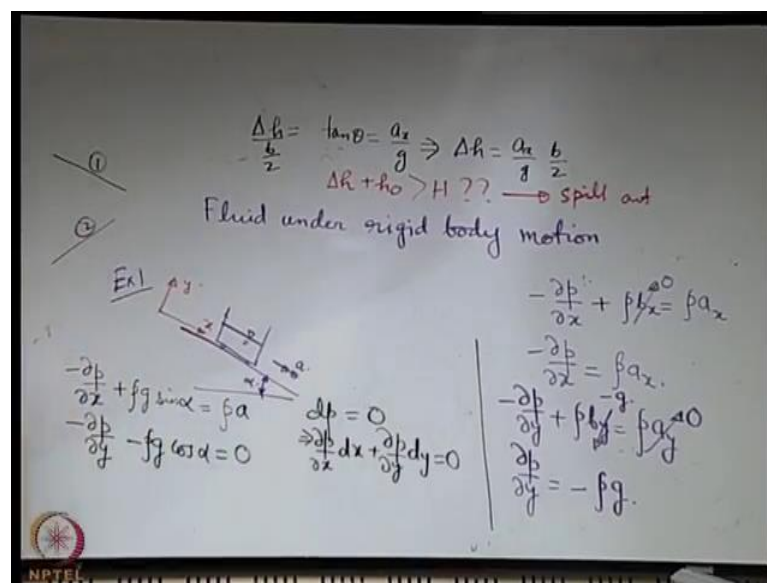 Δh / (b/2) = tanθ = a_x / g ⇒ Δh = (a_x / g) (b/2)
①
Δh + h_0 > H ?? → spill out
②
Fluid under rigid body motion
Ex1
y
x
a
α
-∂p/∂x + ρg sinα = ρa
-∂p/∂y - ρg cosα = 0
dp = 0
⇒ ∂p/∂x dx + ∂p/∂y dy = 0
-∂p/∂x + ρb_x→0 = ρa_x
-∂p/∂x = ρa_x.
-∂p/∂y + ρb_y→-g = ρa_y→0
∂p/∂y = -ρg.
NPTEL